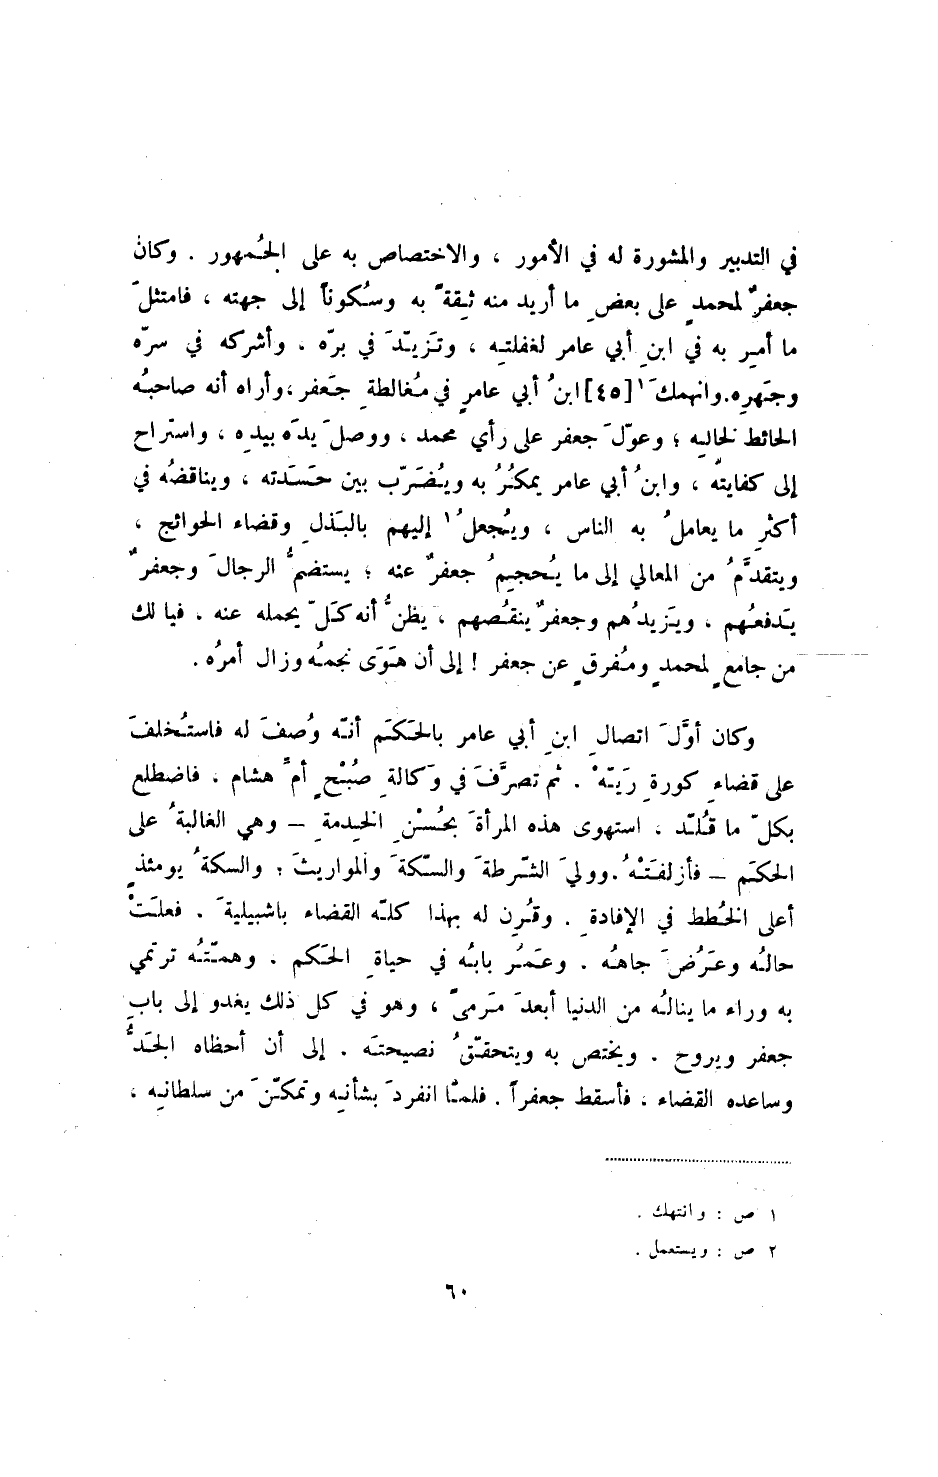 في التدبير والمشورة له في الأمور ، والاختصاص به على الجُمهور . وكان
جعفرٌ لمحمدٍ على بعضِ ما أريد منه ثِقةً به وسُكوناً إلى جهته ، فامتثلَ
ما أمِر به في ابنِ أبي عامر لغفلتِه ، وتَزيّدَ في برّه . وأشركه في سرّه
وجَهرِه.وانهمكَ ١ [٤٥] ابنُ أبي عامرٍ في مُغالطةِ جَعفر ،وأراه أنه صاحبُه
الحائط لخالِيه ؛ وعوّلَ جعفر على رأي محمد ، ووصلَ يدَه بيدِه ، واستراح
إلى كفايتهُ ، وابنُ أبي عامر يمكُرُ به ويُضَرّب بين حَسَدَته ، ويناقضُه في
أكثرِ ما يعاملُ به الناس ، ويُجعلُ ١ إليهم بالبَذلِ وقضاء الحوائج ،
ويتقدَّمُ من المعالي إلى ما يُحجِمُ جعفرٌ عنه ؛ يستضمُّ الرجالَ وجعفرٌ
يَدفعُهم ، ويَزيدُهم وجعفرٌ ينقُصهم ، يظنُّ أنه كَلّ يحمله عنه . فيا لك
من جامعٍ لمحمدٍ ومُفرقٍ عن جعفر ! إلى أن هَوَى نجمُه وزال أمرُه .
وكان أوَّلَ اتصالِ ابنِ أبي عامر بالحَكَم أنّه وُصفَ له فاستُخلفَ
على قضاءِ كورةِ رَيّهْ . ثم تصرَّفَ في وَكالةِ صُبْحٍ أمِّ هشام ، فاضطلع
بكلّ ما قُلّد ، استهوى هذه المرأةَ بحُسْنِ الخِدمةِ – وهي الغالبةُ على
الحكَم – فأزلفَتْهُ.ووليَ الشّرطةَ والسّكةَ والمواريثَ ؛ والسكةُ يومئذٍ
أعلى الخُطط في الإفادةِ . وقُرن له بهذا كلّه القضاء باشبيليةَ . فعلَتْ
حالُه وعَرُضَ جاهُه . وعَمُر بابُه في حياةِ الحَكم . وهمّتُه ترتمي
به وراء ما ينالُه من الدنيا أبعدَ مَرمىً ، وهو في كل ذلك يغدو إلى بابِ
جعفر ويروح . ويختص به ويتحقّقُ نصيحتَه . إلى أن أحظاه الجَدُّ
وساعده القضاء ، فأسقط جعفراً . فلمّا انفردَ بشأنِه وتمكّنَ من سلطانِه ،
١ ص : وانتهك .
٢ ص : ويستعمل .
٦٠